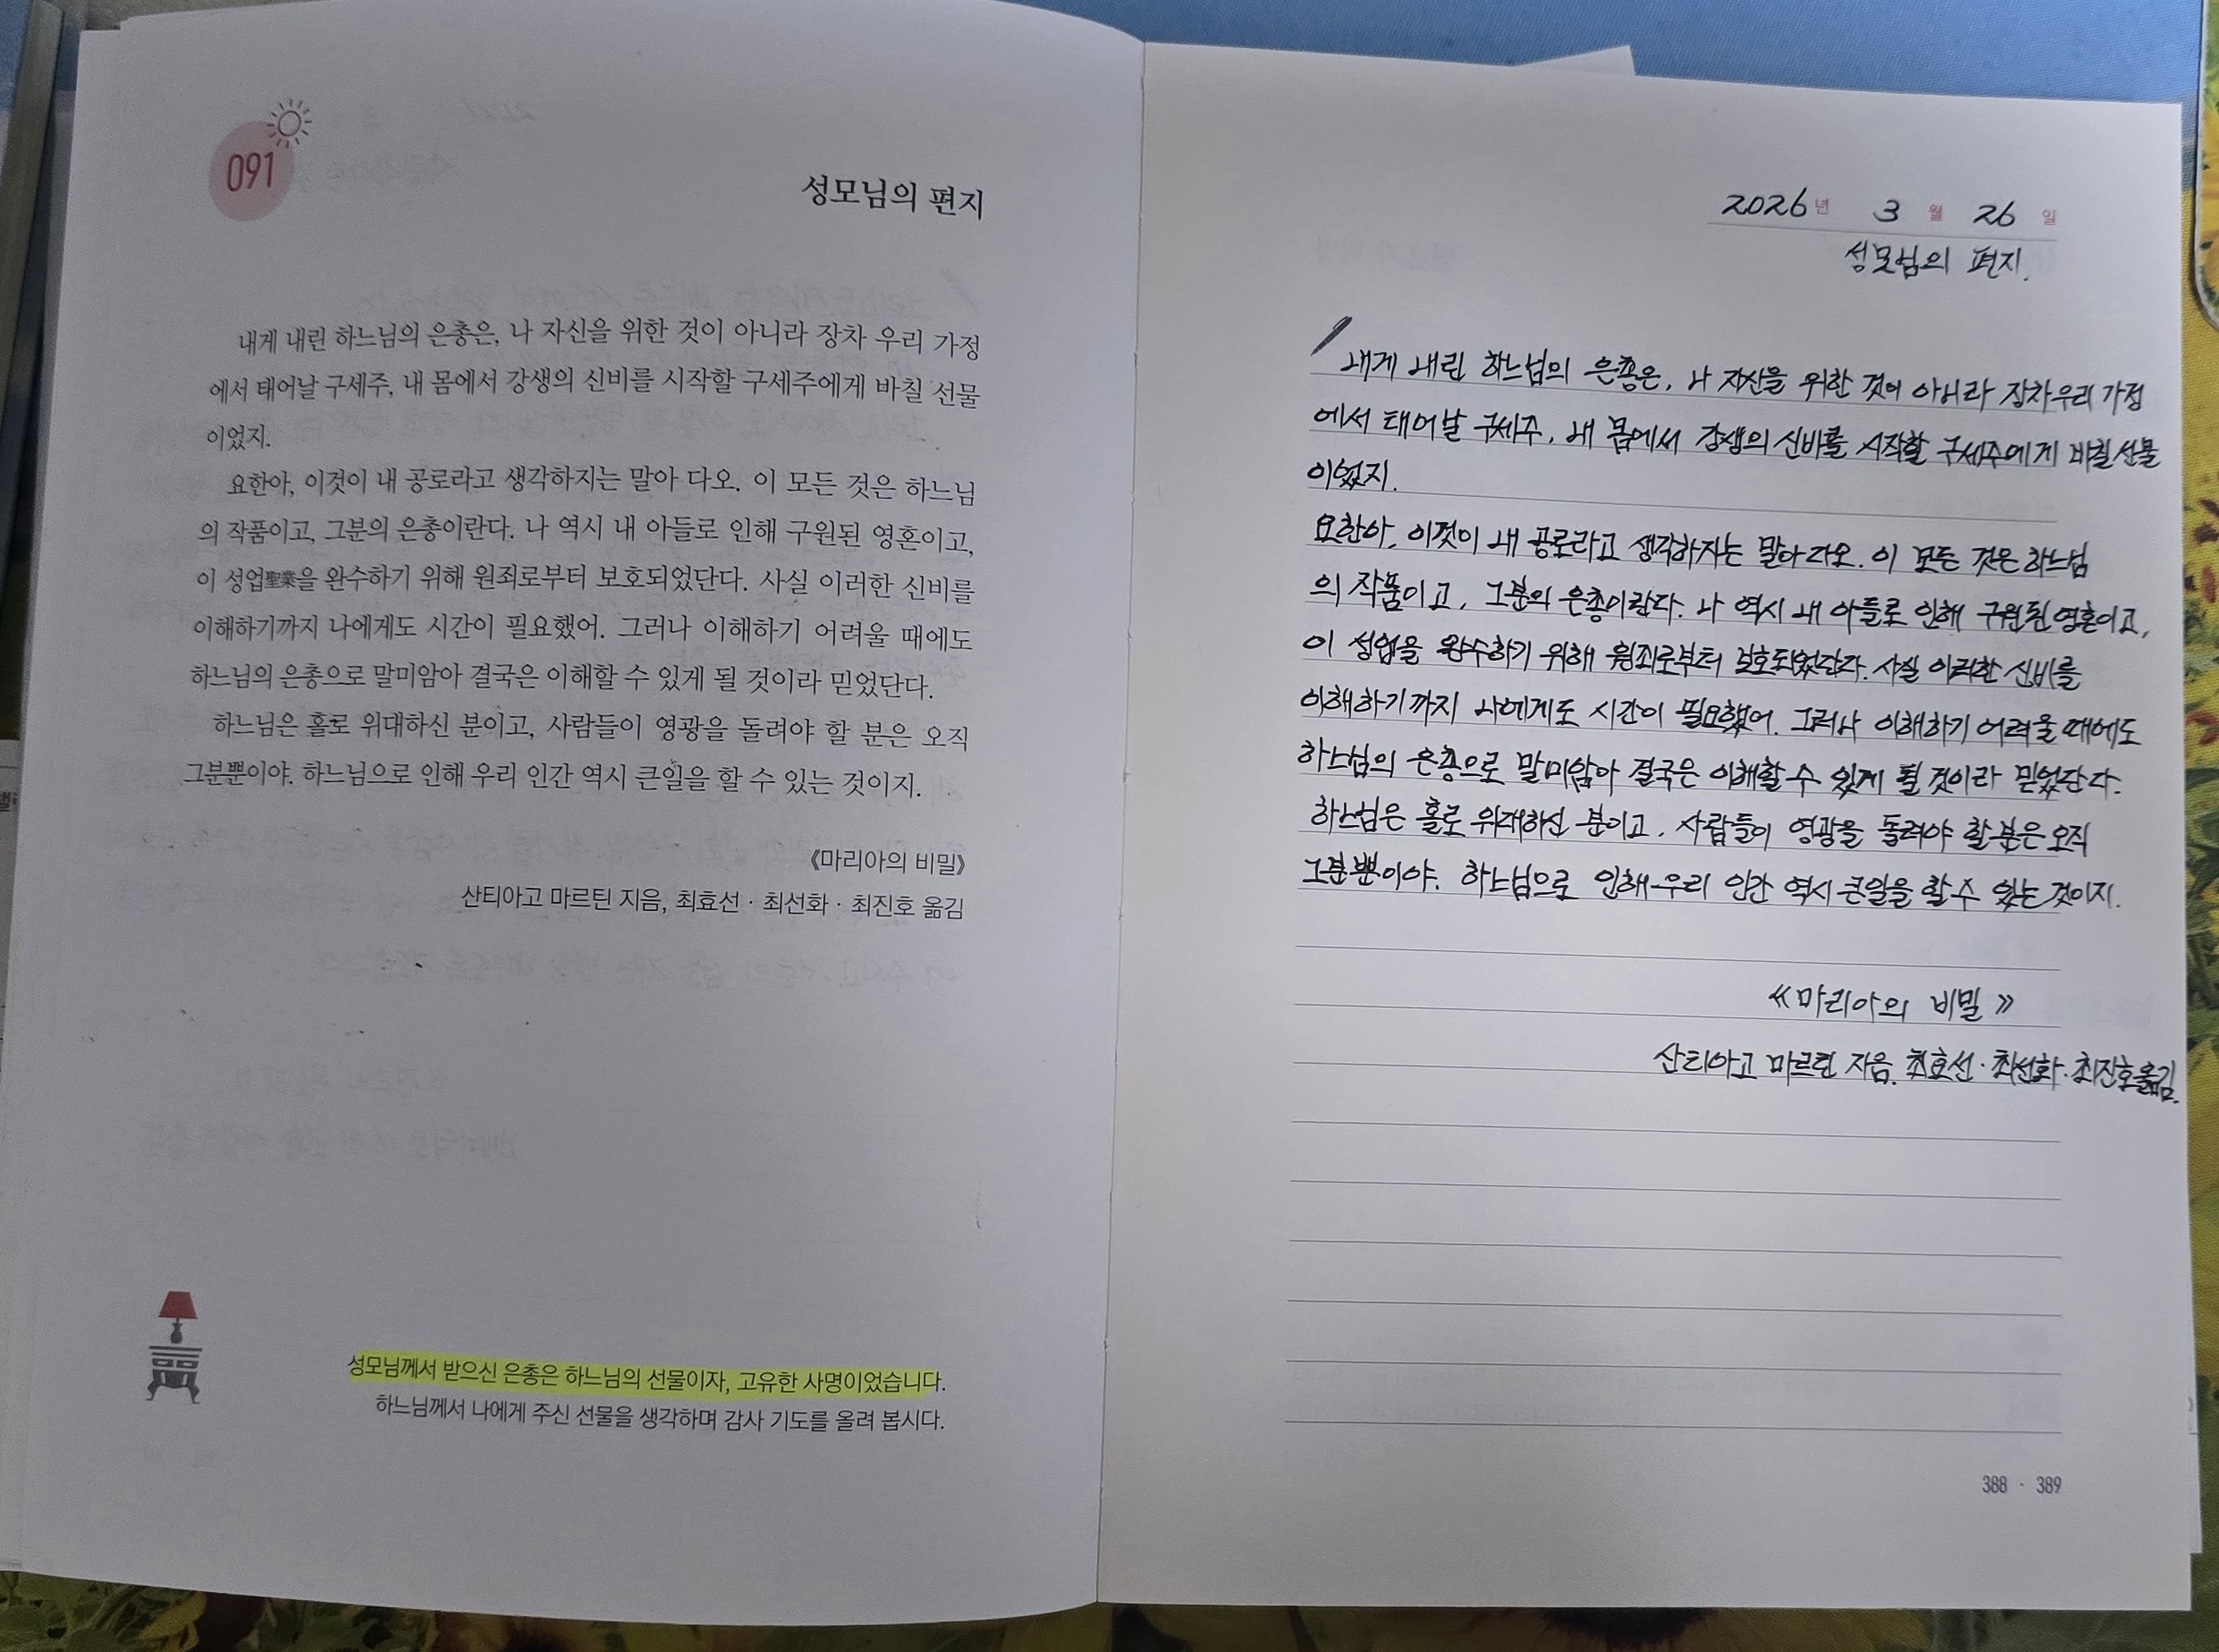 091
성모님의 편지
내게 내린 하느님의 은총은, 나 자신을 위한 것이 아니라 장차 우리 가정
에서 태어날 구세주, 내 몸에서 강생의 신비를 시작할 구세주에게 바칠 선물
이었지.
요한아, 이것이 내 공로라고 생각하지는 말아 다오. 이 모든 것은 하느님
의 작품이고, 그분의 은총이란다. 나 역시 내 아들로 인해 구원된 영혼이고,
이 성업聖業을 완수하기 위해 원죄로부터 보호되었단다. 사실 이러한 신비를
이해하기까지 나에게도 시간이 필요했어. 그러나 이해하기 어려울 때에도
하느님의 은총으로 말미암아 결국은 이해할 수 있게 될 것이라 믿었단다.
하느님은 홀로 위대하신 분이고, 사람들이 영광을 돌려야 할 분은 오직
그분뿐이야. 하느님으로 인해 우리 인간 역시 큰일을 할 수 있는 것이지.
《마리아의 비밀》
산티아고 마르틴 지음, 최효선 · 최선화 · 최진호 옮김
성모님께서 받으신 은총은 하느님의 선물이자, 고유한 사명이었습니다.
하느님께서 나에게 주신 선물을 생각하며 감사 기도를 올려 봅시다.
2026년 3월 26일
성모님의 편지.
내게 내린 하느님의 은총은, 나 자신을 위한 것이 아니라 장차 우리 가정
에서 태어날 구세주, 내 몸에서 강생의 신비를 시작할 구세주에게 바칠 선물
이었지.
요한아, 이것이 내 공로라고 생각하지는 말아 다오. 이 모든 것은 하느님
의 작품이고, 그분의 은총이란다. 나 역시 내 아들로 인해 구원된 영혼이고,
이 성업을 완수하기 위해 원죄로부터 보호되었단다. 사실 이러한 신비를
이해하기까지 나에게도 시간이 필요했어. 그러나 이해하기 어려울 때에도
하느님의 은총으로 말미암아 결국은 이해할 수 있게 될 것이라 믿었단다.
하느님은 홀로 위대하신 분이고, 사람들이 영광을 돌려야 할 분은 오직
그분뿐이야. 하느님으로 인해 우리 인간 역시 큰일을 할 수 있는 것이지.
《마리아의 비밀》
산티아고 마르틴 지음, 최효선 · 최선화 · 최진호 옮김.
388 · 389